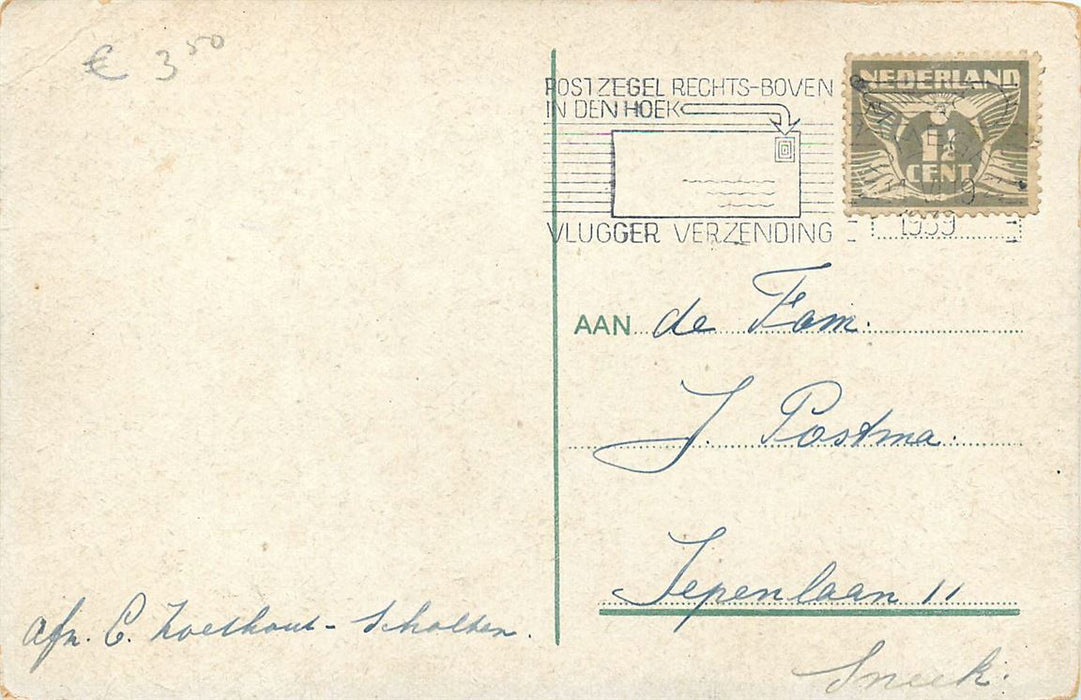 € 3 50
POSTZEGEL RECHTS-BOVEN
IN DEN HOEK
VLUGGER VERZENDING
NEDERLAND
1½
CENT
1939
AAN de Fam.
J. Postma.
Iepenlaan 11
Sneek.
afz. C. Zoethout - Scholten.